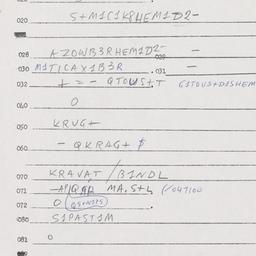 020 S+M1C1K8HEM1D2-
028 AZOWB3RHEM1D2- -
029
030 M1T1CAX1B3R . 031 -
032 + = - QTOWS+T G1TOUS+D1SHEM
040 0
050 KRUG+
060 - QKRAG+ $
070 KRAVAT / B1NDL
071 MA.S+L (/047100
072 0
080 S1PAST1M
081 0